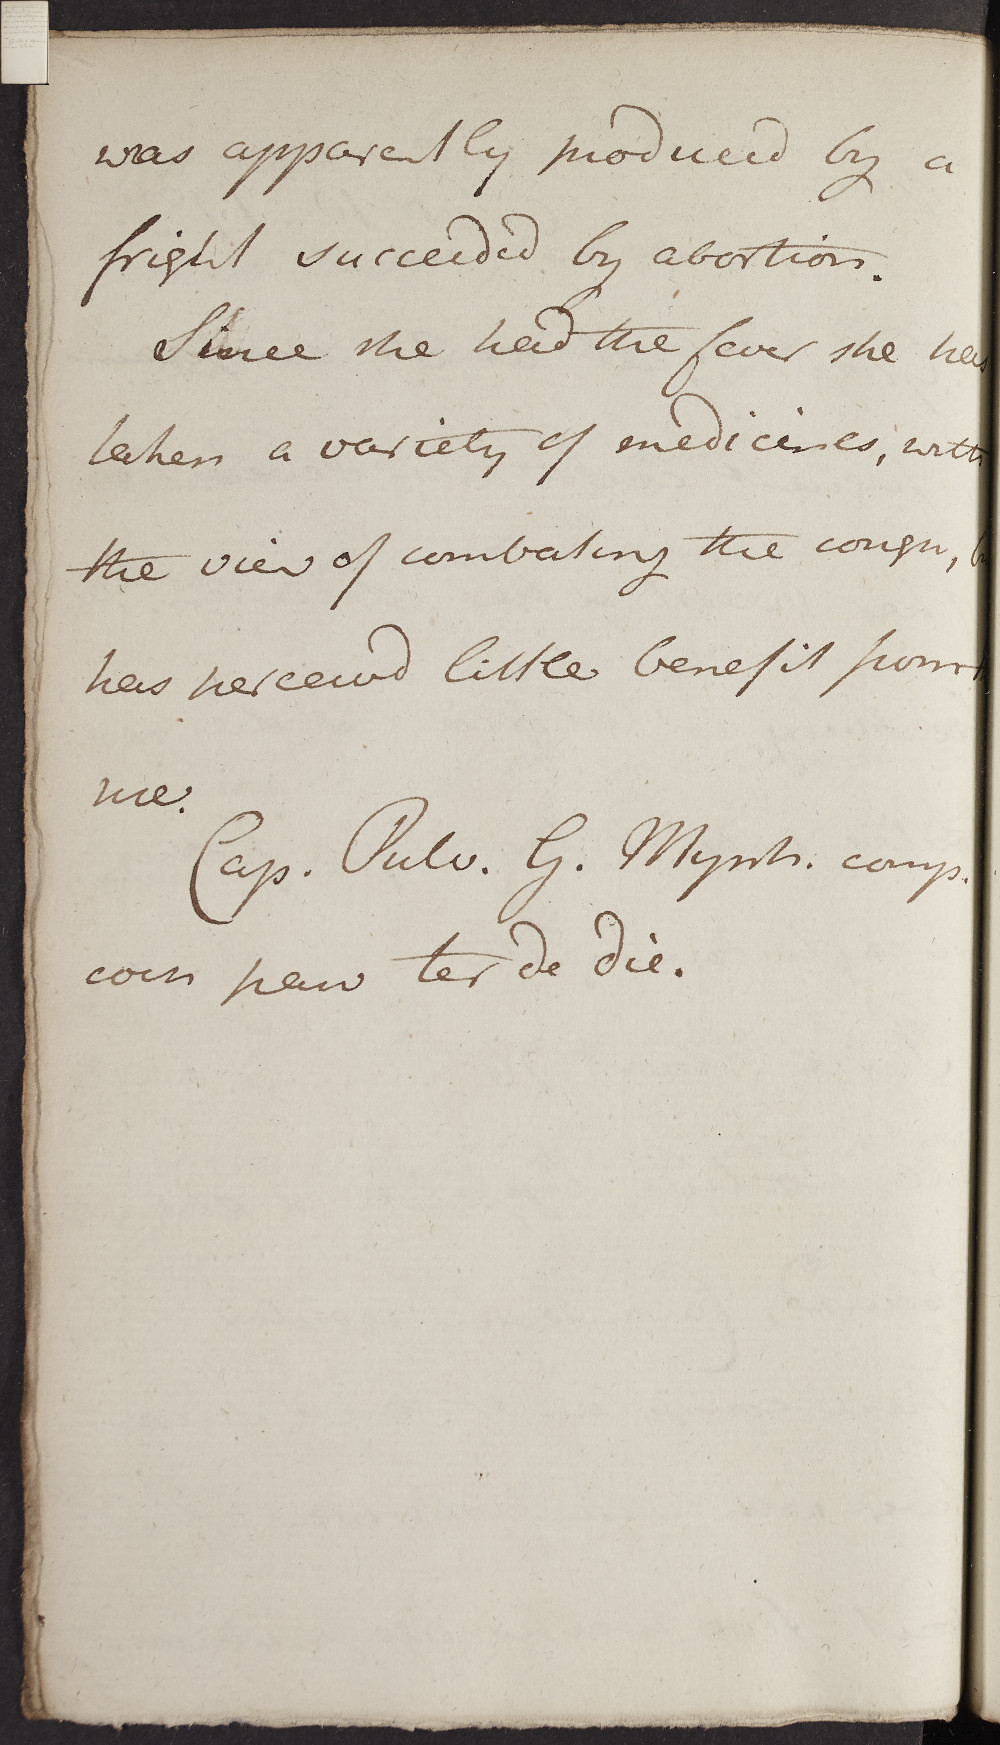 was apparently produced by a
fright succeeded by abortion.
Since she had the fever she has
taken a variety of medicines, with
the view of combating the cough,
has perceivd little benefit from
use.
Cap. Pulv. G. Myrrh. comp.
ter de die.